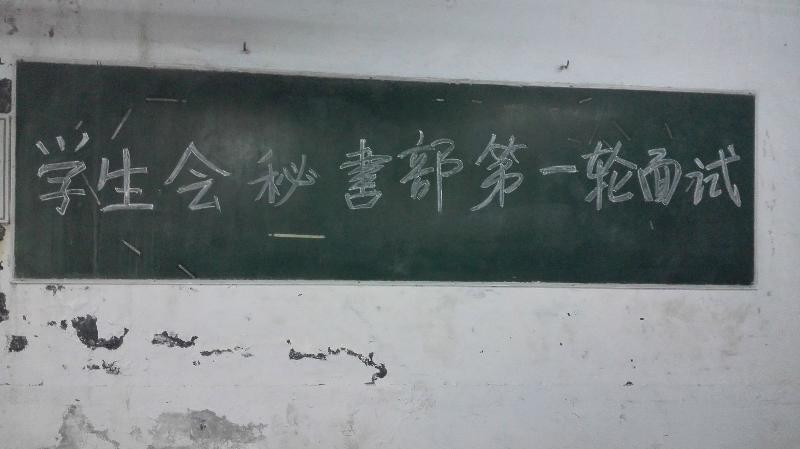 学生会秘書部第一轮面试